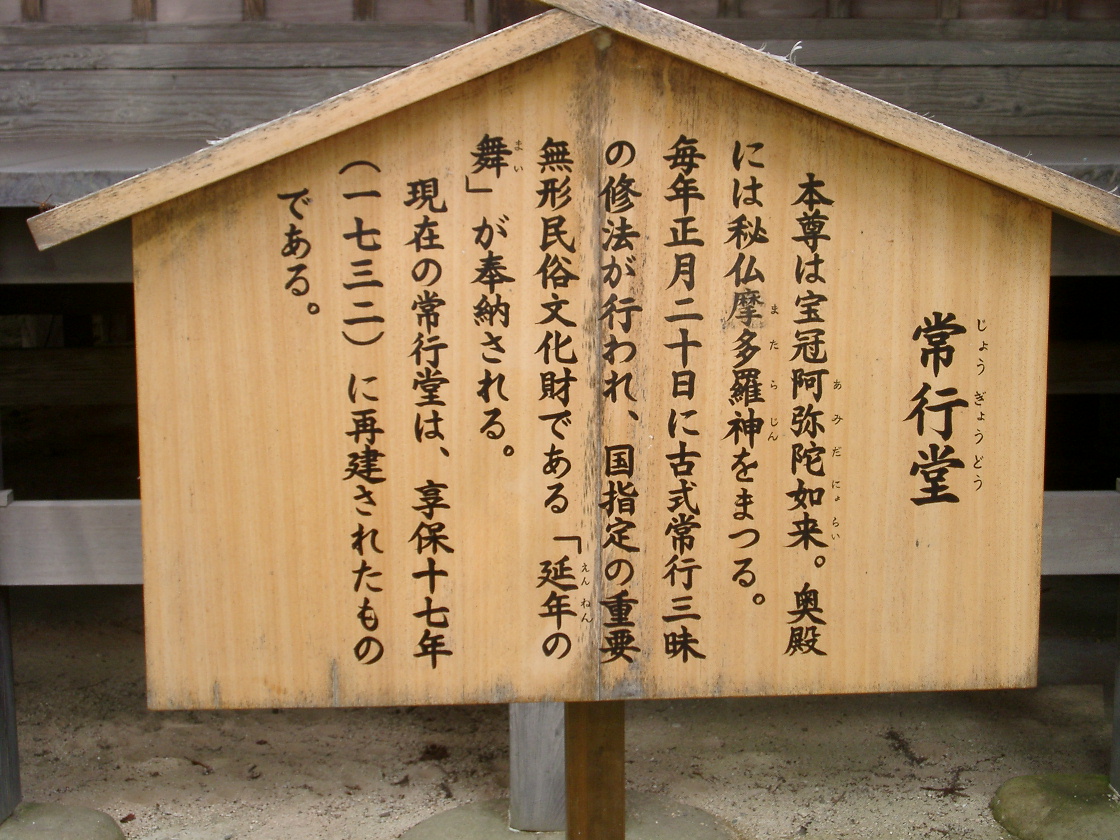 常行堂
じょうぎょうどう
本尊は宝冠阿弥陀如来。奥殿
あみだにょらい
には秘仏摩多羅神をまつる。
またらじん
毎年正月二十日に古式常行三昧
の修法が行われ、国指定の重要
無形民俗文化財である「延年の
えんねん
舞」が奉納される。
まい
現在の常行堂は、享保十七年
(一七三二)に再建されたもの
である。